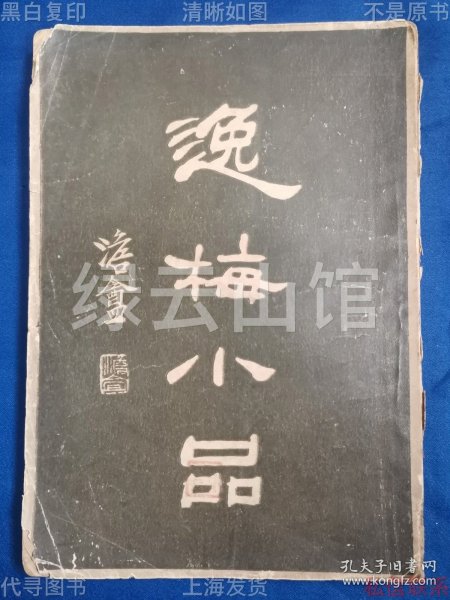 黑白复印 清晰如图 不是原书
逸梅小品
绿云山馆
孔夫子旧书网
www.kongfz.com
代寻图书 上海发货